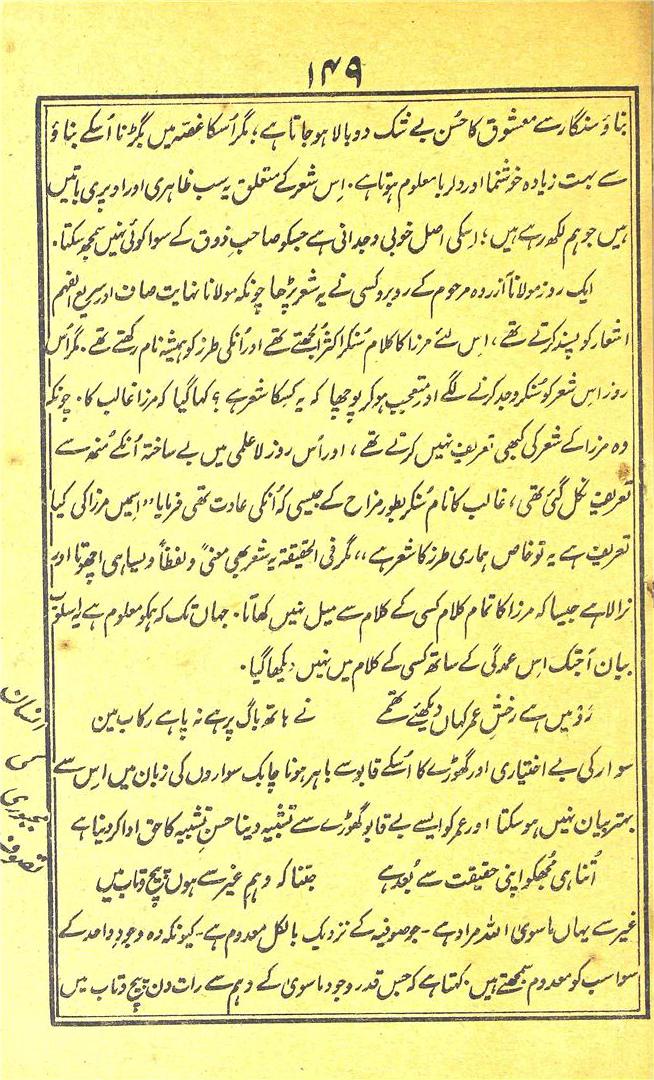 ۱۴۹
بناؤ سنگار سے معشوق کا حُسن بے شک دوبالا ہو جاتا ہے؛ مگر اُسکا غصّہ میں بگڑنا اُسکے بناؤ
سے بہت زیادہ خوشنما اور دلربا معلوم ہوتا ہے۔ اِس شعر کے متعلق یہ سب ظاہری اور اوپری باتیں
ہیں جو ہم لکھ رہے ہیں؛ اِسکی اصل خوبی وجدانی ہے جسکو صاحبِ ذوق کے سوا کوئی نہیں سمجھ سکتا۔
ایک روز مولانا آزردہ مرحوم کے روبرو کسی نے یہ شعر پڑھا چونکہ مولانا نہایت صاف اور سریع الفہم
اشعار کو پسند کرتے تھے، اِس لئے مرزا کا کلام سُنکر اکثر اُلجھتے تھے اور اُنکی طرز کو ہمیشہ نام رکھتے تھے۔ مگر اُس
روز اِس شعر کو سُنکر وجد کرنے لگے اور متعجب ہوکر پوچھا کہ یہ کِسکا شعر ہے؟ کہا گیا کہ مرزا غالب کا۔ چونکہ
وہ مرزا کے شعر کی کبھی تعریف نہیں کرتے تھے، اور اُس روز لاعلمی میں بے ساختہ اُنکے مُنھ سے
تعریف نکل گئی تھی، غالب کا نام سُنکر بطور مزاح کے جیسی کہ اُنکی عادت تھی فرمایا "اِسمیں مرزا کی کیا
تعریف ہے یہ تو خاص ہماری طرز کا شعر ہے" مگر فی الحقیقۃ یہ شعر بھی معنیً و لفظاً ویسا ہی اچھوتا اور
نرالا ہے جیسا کہ مرزا کا تمام کلام کسی کے کلام سے میل نہیں کھاتا۔ جہاں تک کہ ہمکو معلوم ہے یہ اسلوبِ
بیان آجتک اِس عمدگی کے ساتھ کسی کے کلام میں نہیں دیکھا گیا۔
رَو میں ہے رخشِ عمر کہاں دیکھئے تھمے نے ہاتھ باگ پر ہے نہ پا ہے رکاب میں
سوار کی بے اختیاری اور گھوڑے کا اُسکے قابو سے باہر ہونا چابک سواروں کی زبان میں اِس سے
بہتر بیان نہیں ہوسکتا اور عمر کو ایسے بے قابو گھوڑے سے تشبیہ دینا حسنِ تشبیہ کا حق ادا کردینا ہے
اُتنا ہی مُجھکو اپنی حقیقت سے بُعد ہے جتنا کہ وہمِ غیر سے ہوں پیچ و تاب میں
غیر سے یہاں ماسوی اللہ مراد ہے۔ جو صوفیہ کے نزدیک بالکل معدوم ہے۔ کیونکہ وہ وجودِ واحد کے
سوا سب کو معدوم سمجھتے ہیں۔ کہتا ہے کہ جس قدر وجود ماسوی کے وہم سے رات دن پیچ و تاب میں
انسان
کی
مجبوری
تصوف